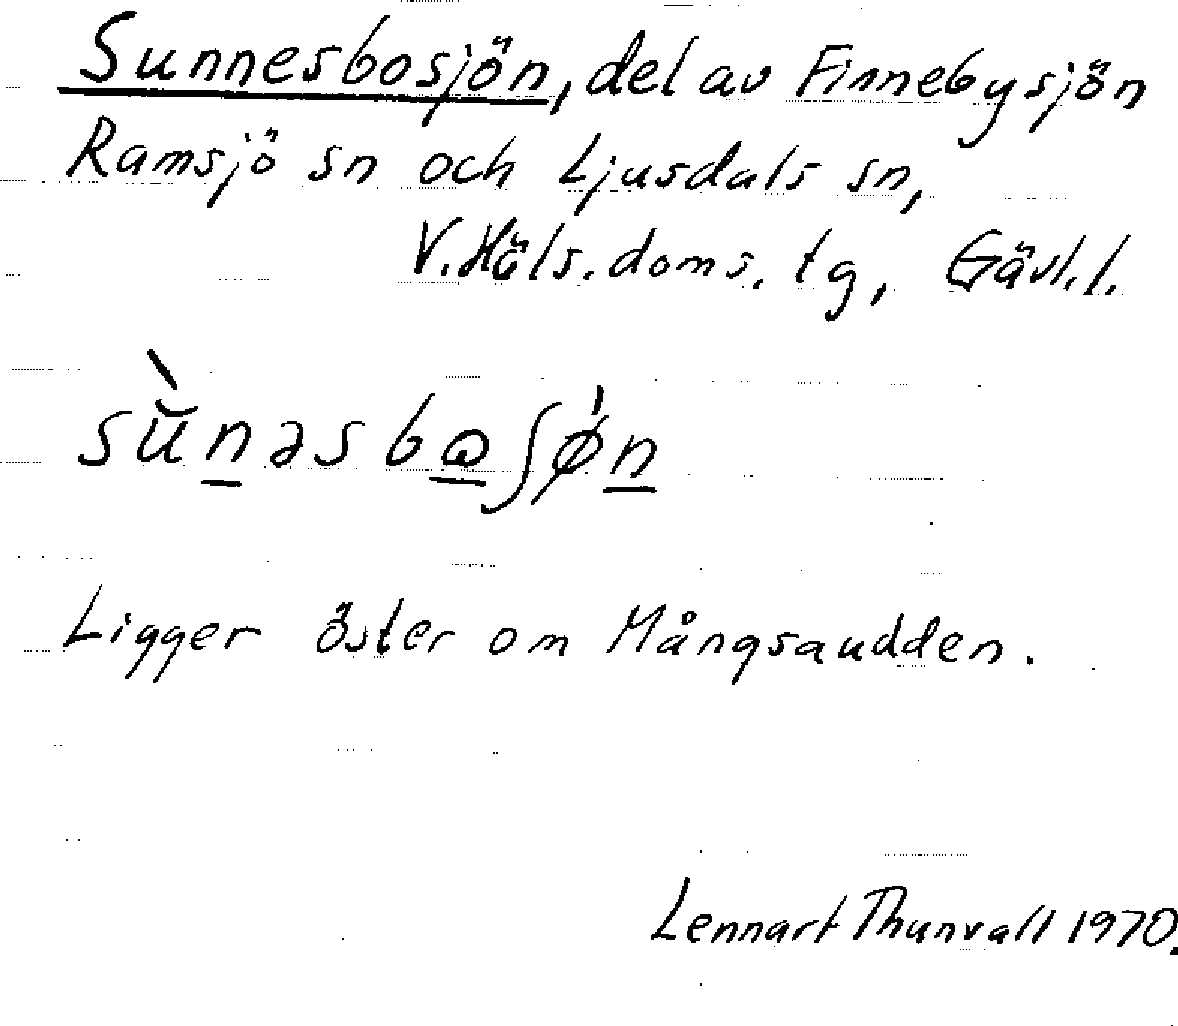 Sunnesbosjön, del av Finnebysjön
Ramsjö sn och Ljusdals sn,
V. Häls. doms. tg, Gävl.l.
sùn̲əsbɷ̲ʃø̍n̲
Ligger öster om Mångsaudden.
Lennart Thunvall 1970.